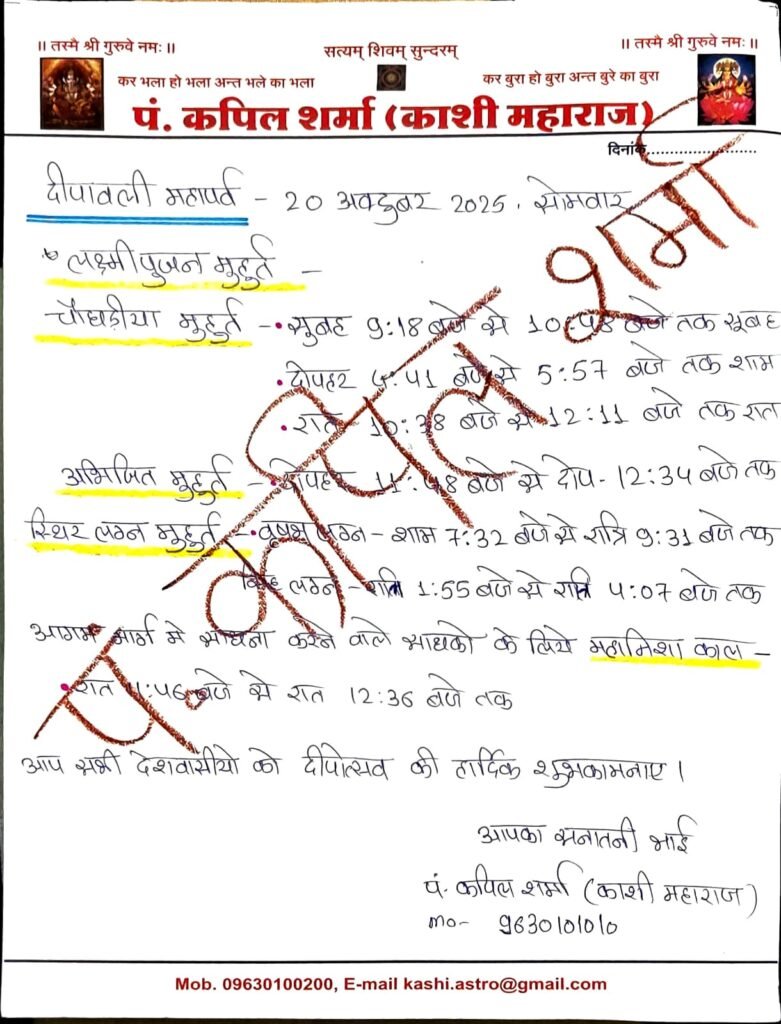 ॥ तस्मै श्री गुरुवे नमः ॥
सत्यम् शिवम् सुन्दरम्
॥ तस्मै श्री गुरुवे नमः ॥
कर भला हो भला अन्त भले का भला
कर बुरा हो बुरा अन्त बुरे का बुरा
पं. कपिल शर्मा (काशी महाराज)
दिनांक......................
दीपावली महापर्व - 20 अक्टुबर 2025, सोमवार
लक्ष्मीपुजन मुहुर्त -
चौघड़ीया मुहुर्त - • सुबह 9:18 बजे से 10:48 बजे तक सूबह
• दोपहर 4:41 बजे से 5:57 बजे तक शाम
• रात 10:38 बजे से 12:11 बजे तक रात
अभिजित मुहुर्त - • दोपहर 11:48 बजे से दोप. 12:34 बजे तक
स्थिर लग्न मुहुर्त - • वृषभ लग्न - शाम 7:32 बजे से रात्रि 9:31 बजे तक
सिंह लग्न - रात्रि 1:55 बजे से रात्रि 4:07 बजे तक
आगम मार्ग मे साधना करने वाले साधको के लिये महानिशा काल -
• रात 11:46 बजे से रात 12:36 बजे तक
आप सभी देशवासीयो को दीपोत्सव की हार्दिक शुभकामनाए।
आपका सनातनी भाई
पं. कपिल शर्मा (काशी महाराज)
mo- 9630101010
पं. कपिल शर्मा
Mob. 09630100200, E-mail kashi.astro@gmail.com